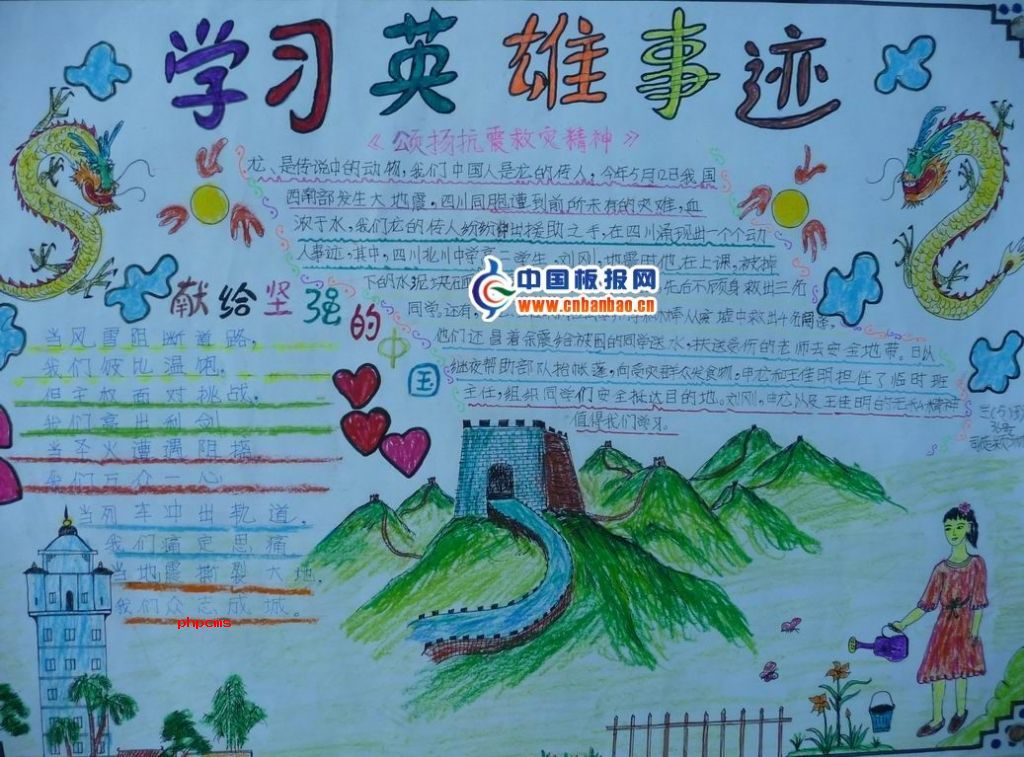 学习英雄事迹
《颂扬抗震救灾精神》
龙、是传说中的动物,我们中国人是龙的传人,今年5月12日我国
西南部发生大地震。四川同胞遭到前所未有的灾难,血
浓于水,我们龙的传人纷纷伸出援助之手,在四川涌现出一个个动
人事迹,其中,四川北川中学高二学生,刘刚,地震时他在上课,被掉
下的水泥块 先后不顾身救出三名
同学。还有, 从废墟中救出十名同学。
他们还冒着余震给被困的同学送水,扶送受伤的老师去安全地带。日以
继夜帮助部队抬帐篷,向受灾群众发食物,申龙和王佳明担任了临时班
主任,组织同学们安全抵达目的地。刘刚,申龙以及王佳明的无私精神
值得我们学习。
中国板报网
www.cnbanbao.cn
献给坚强的中国
当风雪阻断道路,
我们彼比温饱。
但主权面对挑战,
我们亮出利剑
当圣火遭遇阻挠
我们万众一心
当列车冲出轨道。
我们痛定思痛
当地震撕裂大地,
我们众志成城。
phpcms